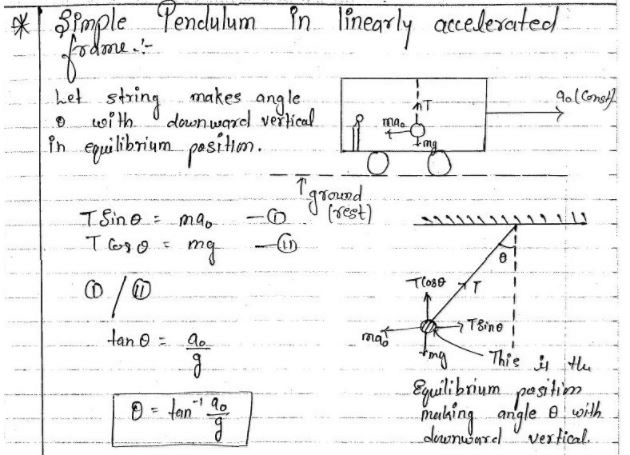 * Simple Pendulum in linearly accelerated
frame :-
Let string makes angle
θ with downward vertical
in equilibrium position.
T
ma₀
mg
a₀ (Const)
↑ ground
(rest)
T Sinθ = ma₀ — (i)
T Cosθ = mg — (ii)
(i) / (ii)
tan θ = a₀/g
θ = tan⁻¹ a₀/g
θ
TCosθ
T
ma₀
TSinθ
mg
This is the
Equilibrium position
making angle θ with
downward vertical.